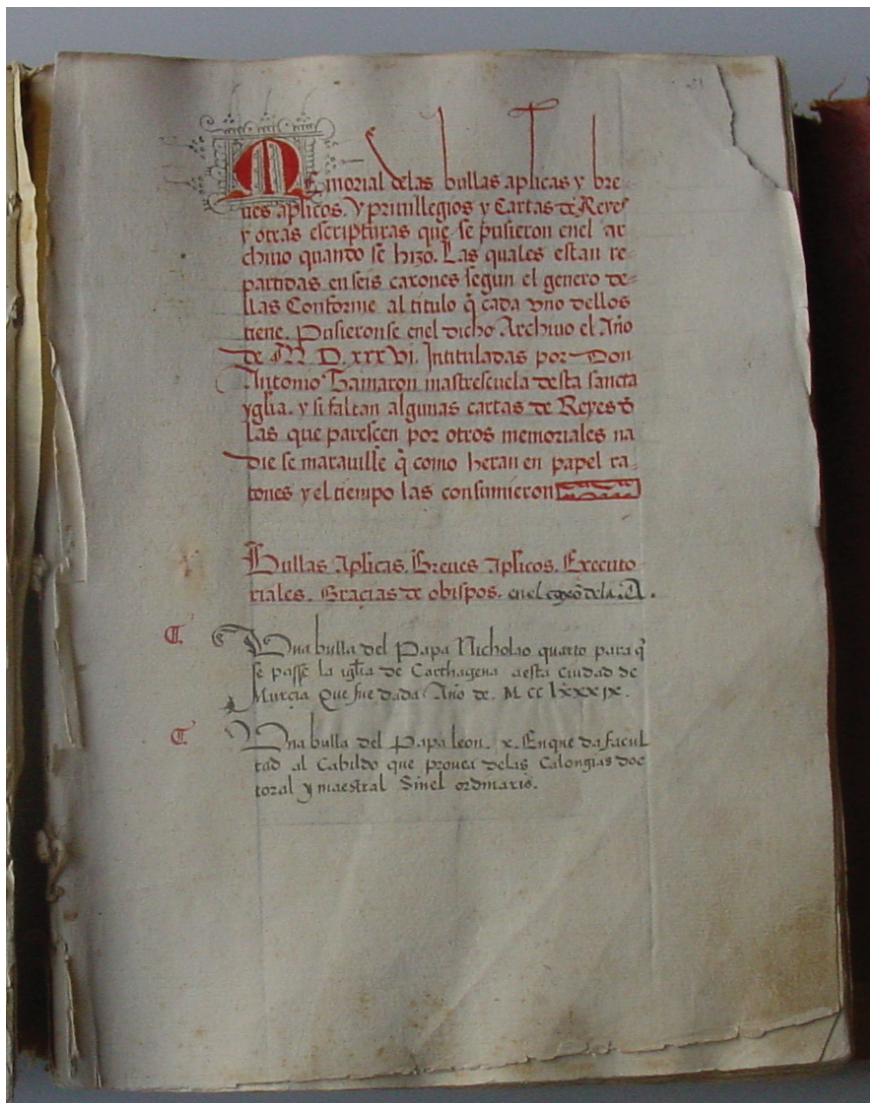 MEmorial delas bullas aplicas y bre-
ues aplicos. Y priuillegios y Cartas de Reyes
y otras escripturas que se pusieron enel ar
chiuo quando se hizo. Las quales estan re-
partidas en seis caxones segun el genero de-
llas Conforme al titulo q̃ cada vno dellos
tiene. Pusieronse enel dicho Archiuo el Año
de M D. xxx vi. Intituladas por Don
Antonio mastrescuela desta sancta
yglia. y si faltan algunas cartas de Reyes õ
las que parescen por otros memoriales na
die se marauille q̃ como heran en papel ra-
tones y el tiempo las consumieron
Bullas Aplicas. Breues Aplicos. Executo
riales. Gracias de obispos. en el dela. A.
Una bulla del Papa Nicholao quarto para q̃
se passe la iglia de Carthagena aesta ciudad de
Murcia Que fue dada Año de. M cc lxxxix.
Una bulla del Papa leon. x. En que da facul
tad al Cabildo que prouea delas Calongias doc
toral y maestral Sinel ordinario.